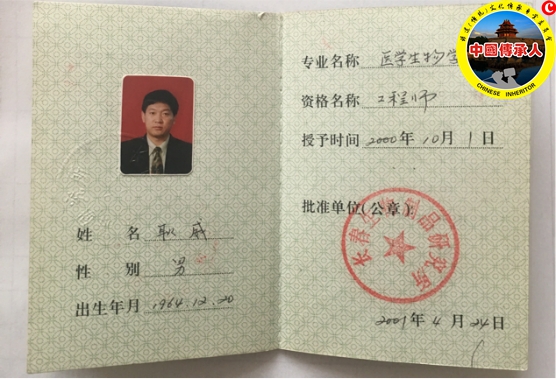 姓 名 耿威
性 别 男
出生年月 1964.12.20
专业名称 医学生物学
资格名称 工程师
授予时间 2000年10月1日
批准单位(公章)
长春生物制品研究所
2001年4月24日
中國傳承人
CHINESE INHERITOR
C